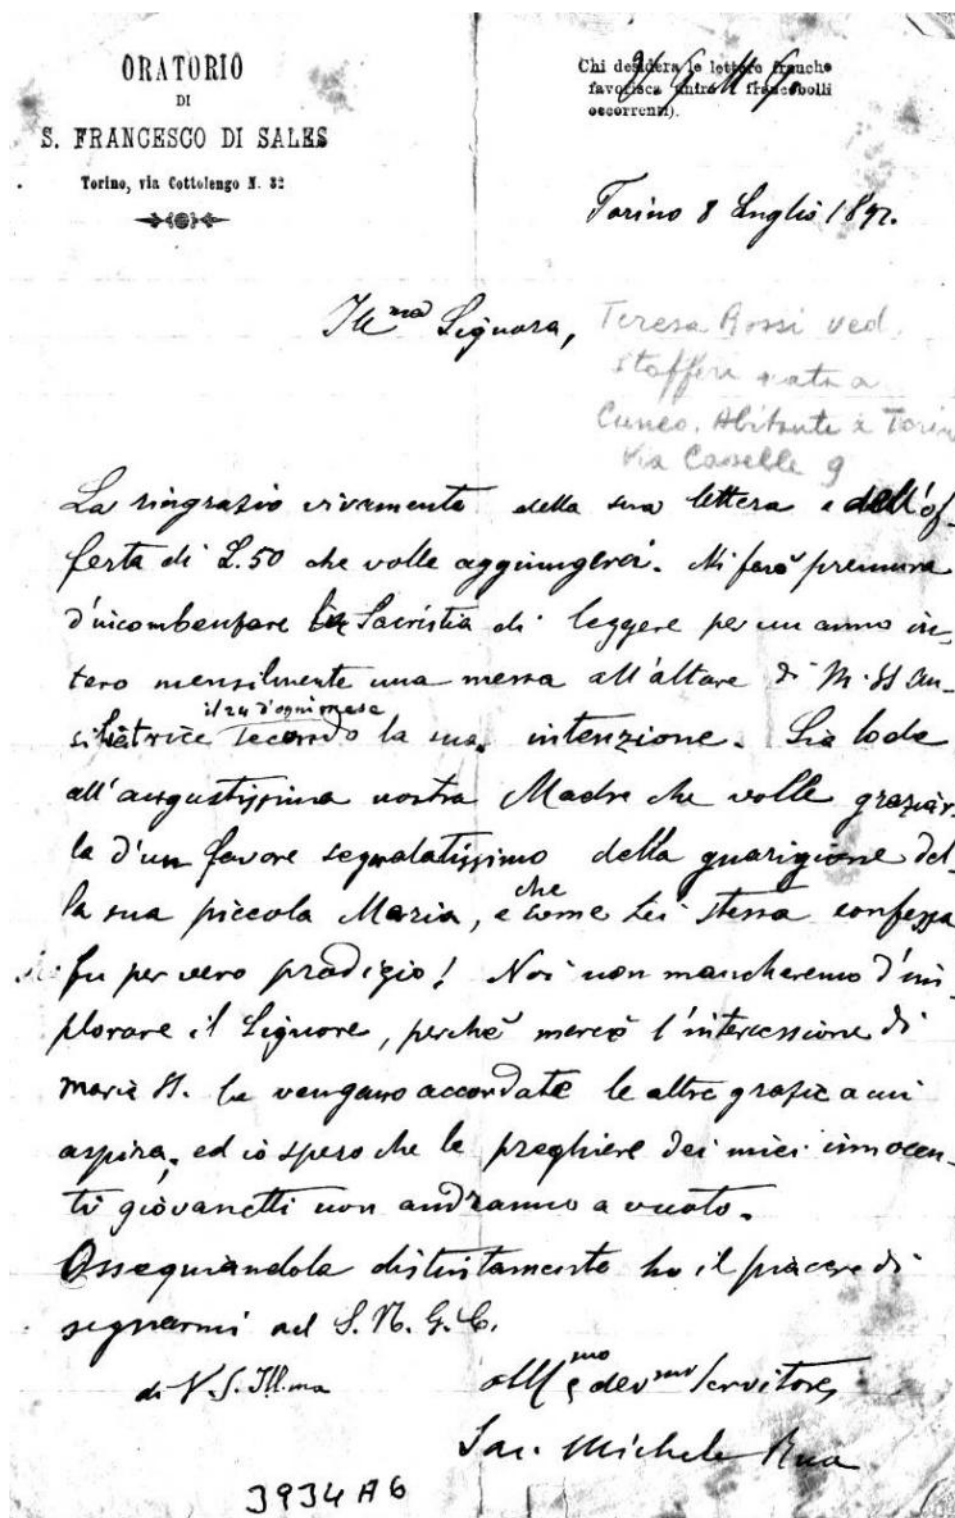 ORATORIO
DI
S. FRANCESCO DI SALES
Torino, via Cottolengo N. 32
Chi desidera le lettere franche
favorisca unire i francobolli
occorrenti).
Torino 8 Luglio 1892.
Ill.ma Signora,
Teresa Rossi ved.
Stafferi nata a
Cuneo. Abitante a Torino
Via Caselle 9
La ringrazio vivamente della sua lettera e dell'of-
ferta di L.50 che volle aggiungervi. Mi farò premura
d'incombenzare la Sacristia di leggere per un anno in-
tero mensilmente una messa all'altare di M. SS Au-
il 24 d'ogni mese
siliatrice secondo la sua intenzione. Sia lode
all'augustissima nostra Madre che volle graziar-
la d'un favore segnalatissimo della guarigione del-
la sua piccola Maria, e che come Lei stessa confessa
fu per vero prodigio! Noi non mancheremo d'im-
plorare il Signore, perchè mercè l'intercessione di
Maria SS. le vengano accordate le altre grazie a cui
aspira, ed io spero che le preghiere dei miei innocen-
ti giovanetti non andranno a vuoto.
Ossequiandola distintamente ho il piacere di
segnarmi nel S. N. G. C.
di V. S. Ill.ma
obb.mo e dev.mo servitore,
Sac. Michele Rua
3934 A6